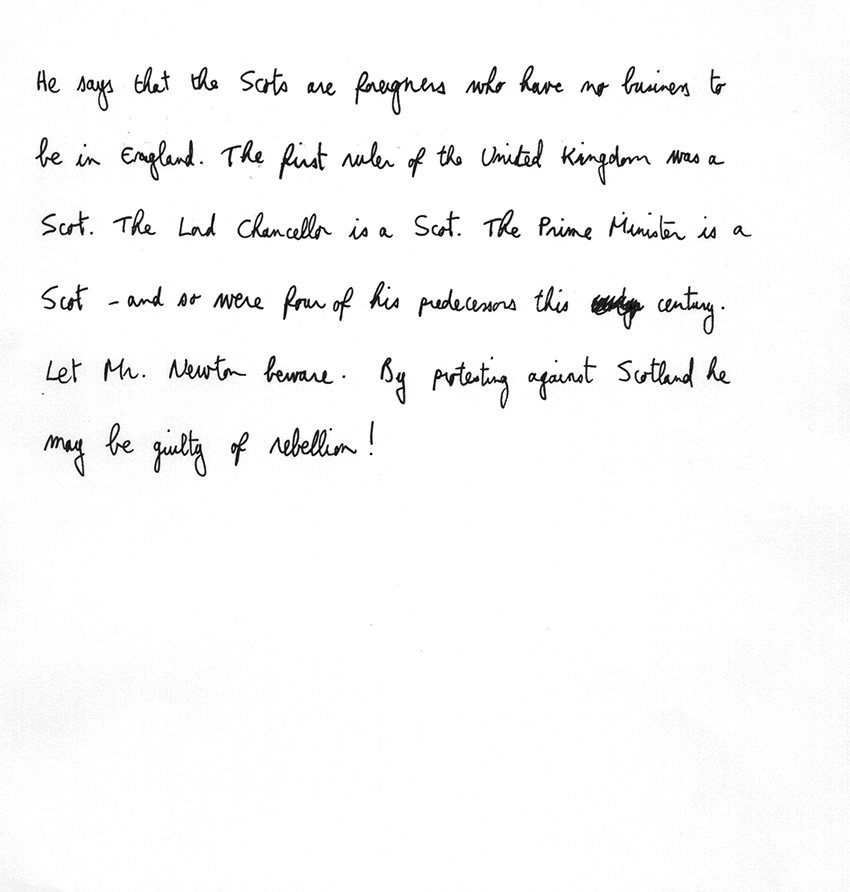 He says that the Scots are foreigners who have no business to
be in England. The first ruler of the United Kingdom was a
Scot. The Lord Chancellor is a Scot. The Prime Minister is a
Scot - and so were four of his predecessors this century.
Let Mr. Newton beware. By protesting against Scotland he
may be guilty of rebellion!